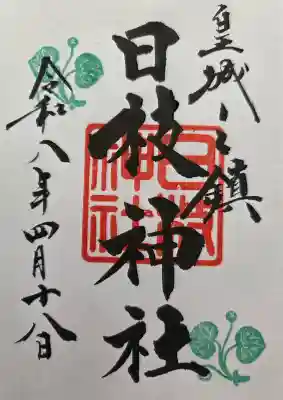 皇城之鎮
日枝神社
令和八年四月十八日
日枝神社